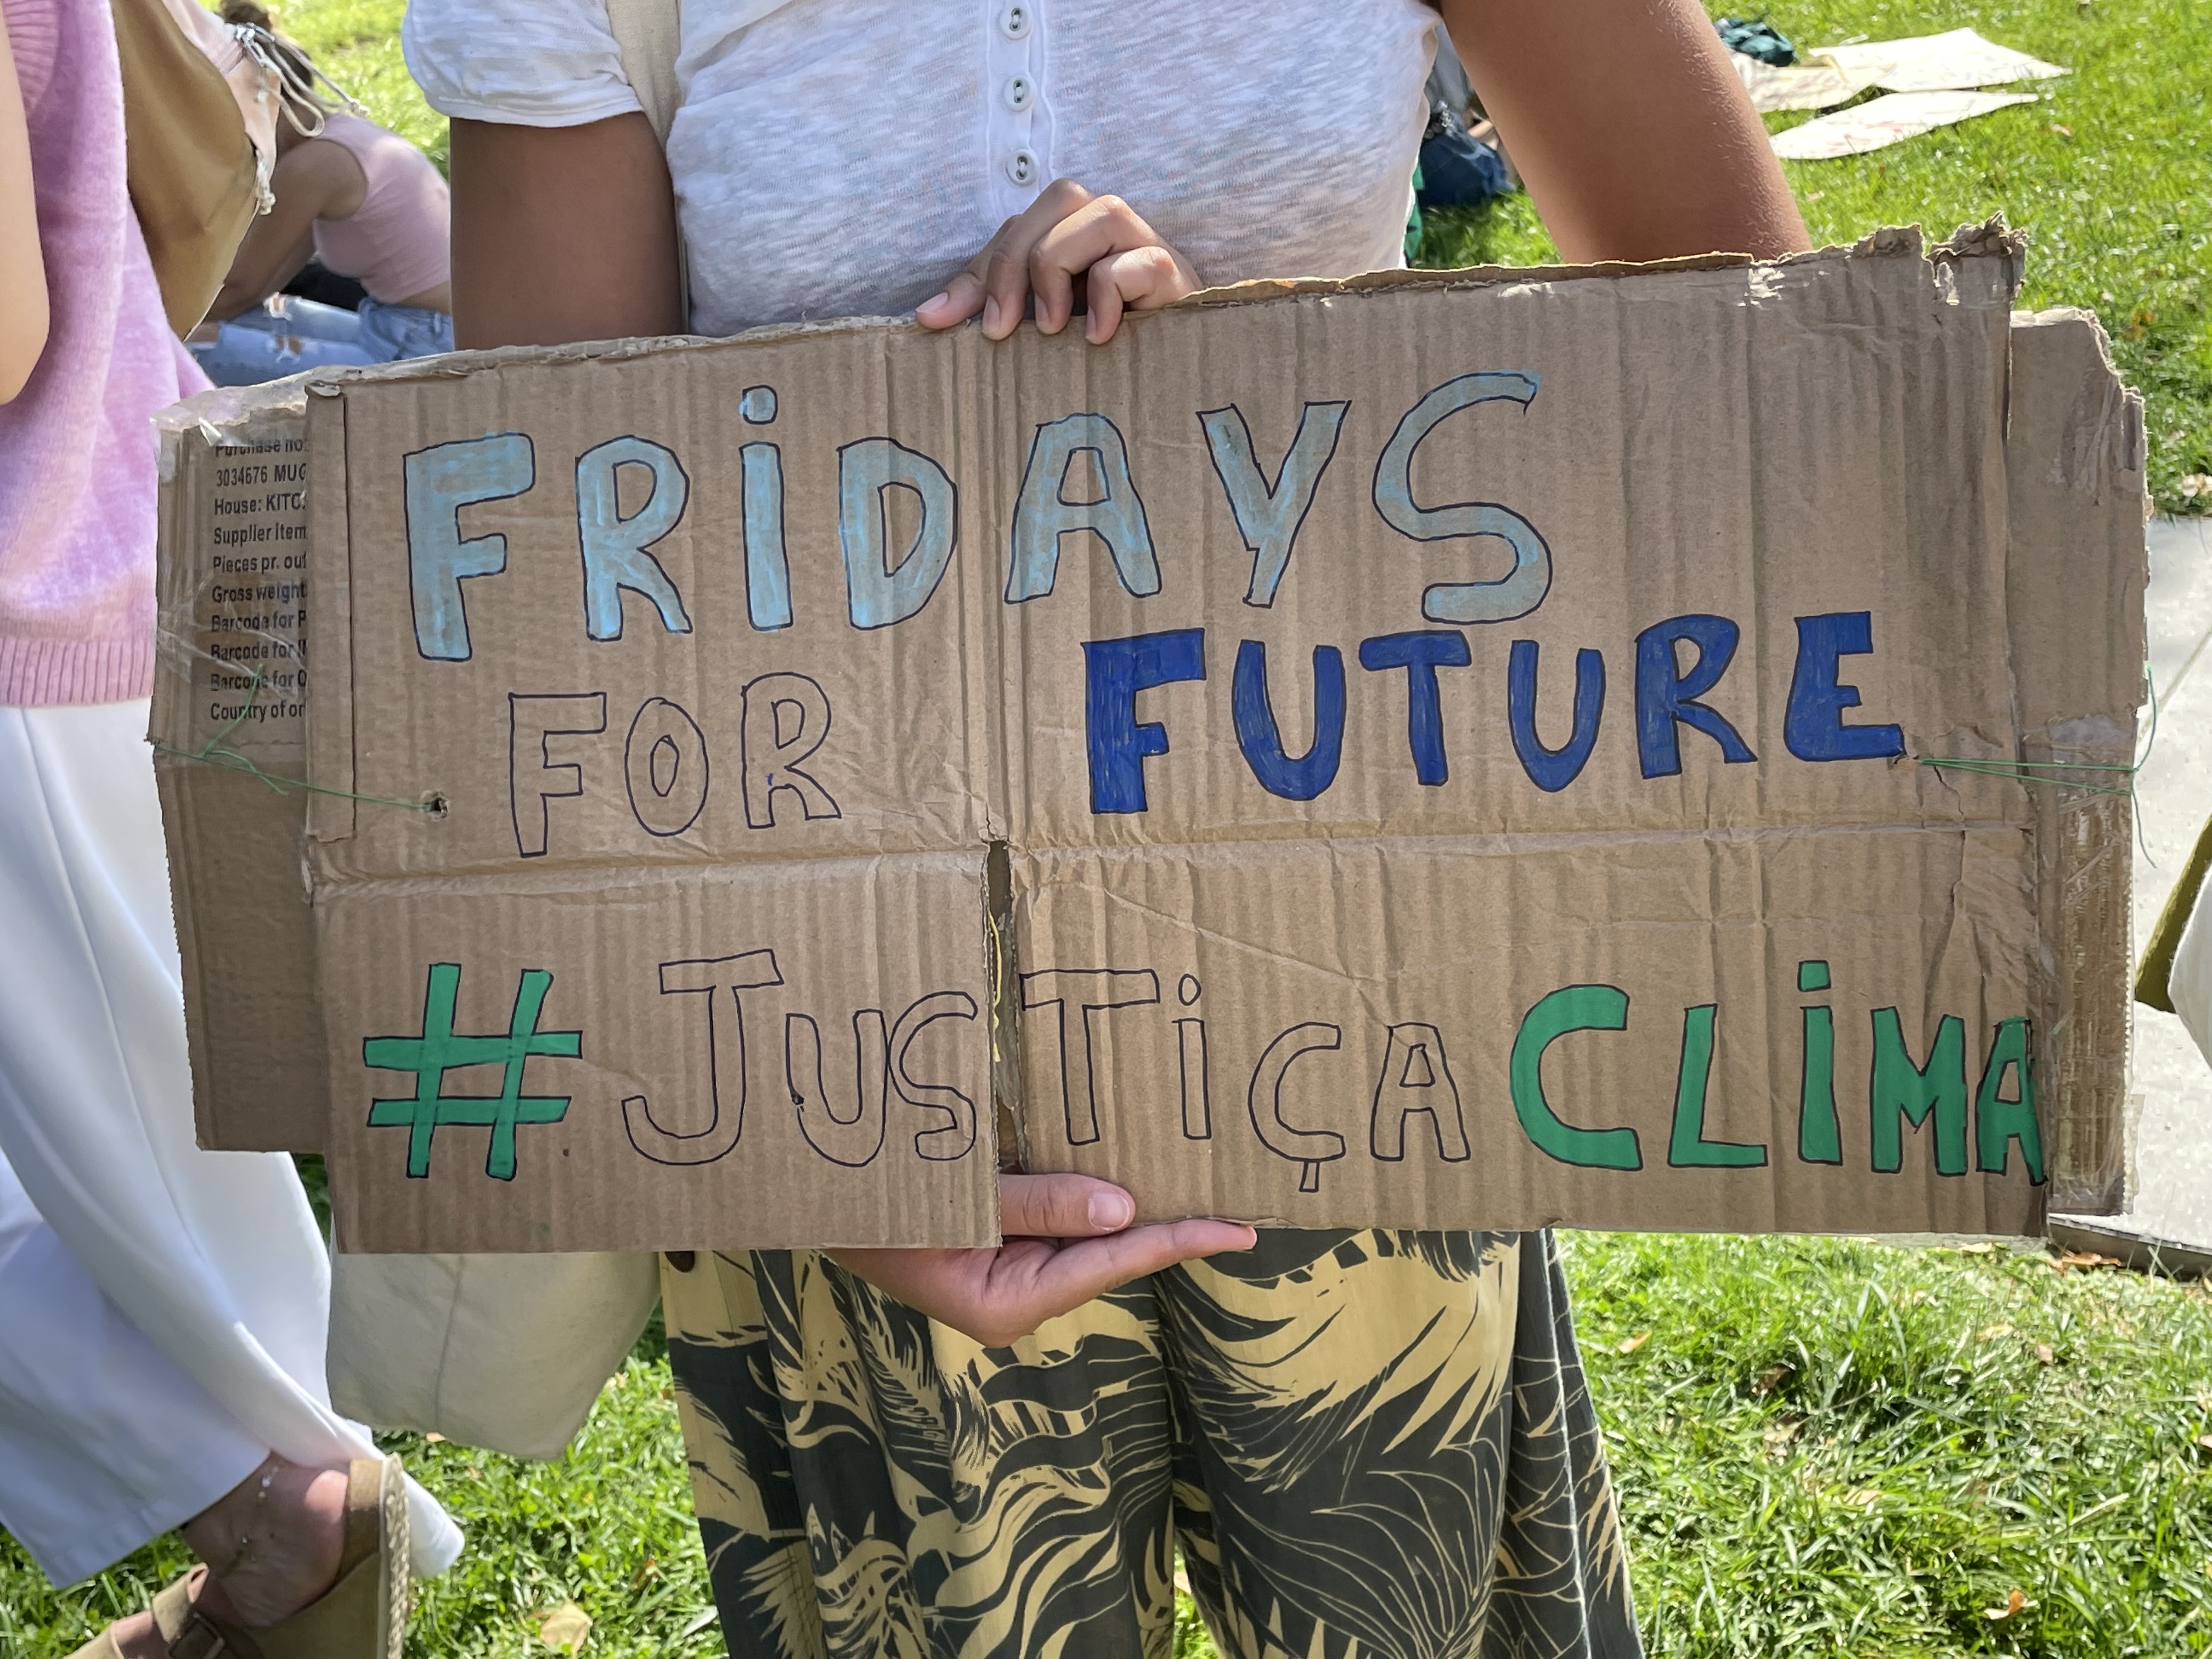 FRiDAYS
FOR FUTURE
#JUSTiÇACLiMA
Purchase no
3034676 MUG
House: KITC
Supplier item
Pieces pr. out
Gross weight
Barcode for
Barcode for
Barcode for
Country of or